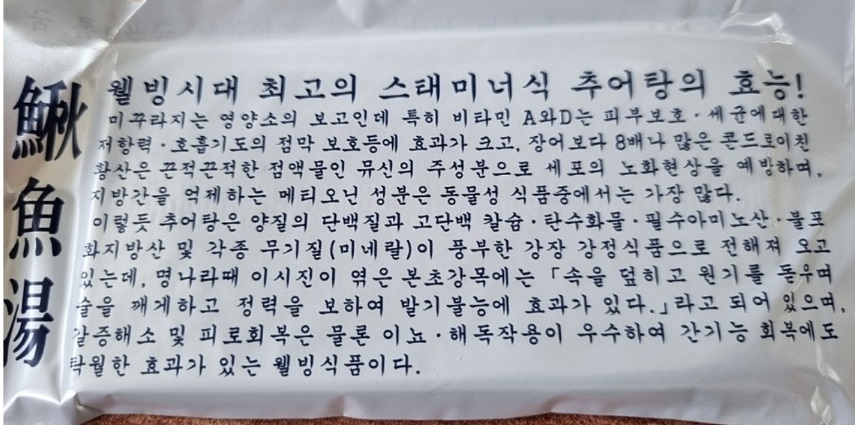 鰍魚湯
웰빙시대 최고의 스태미너식 추어탕의 효능!
미꾸라지는 영양소의 보고인데 특히 비타민 A와D는 피부보호·세균에대한
저항력·호흡기도의 점막 보호등에 효과가 크고, 장어보다 8배나 많은 콘드로이친
황산은 끈적끈적한 점액물인 뮤신의 주성분으로 세포의 노화현상을 예방하며,
지방간을 억제하는 메티오닌 성분은 동물성 식품중에서는 가장 많다.
이렇듯 추어탕은 양질의 단백질과 고단백 칼슘·탄수화물·필수아미노산·불포
화지방산 및 각종 무기질(미네랄)이 풍부한 강장 강정식품으로 전해져 오고
있는데, 명나라때 이시진이 엮은 본초강목에는 「속을 덮히고 원기를 돋우며
술을 깨게하고 정력을 보하여 발기불능에 효과가 있다.」라고 되어 있으며,
갈증해소 및 피로회복은 물론 이뇨·해독작용이 우수하여 간기능 회복에도
탁월한 효과가 있는 웰빙식품이다.